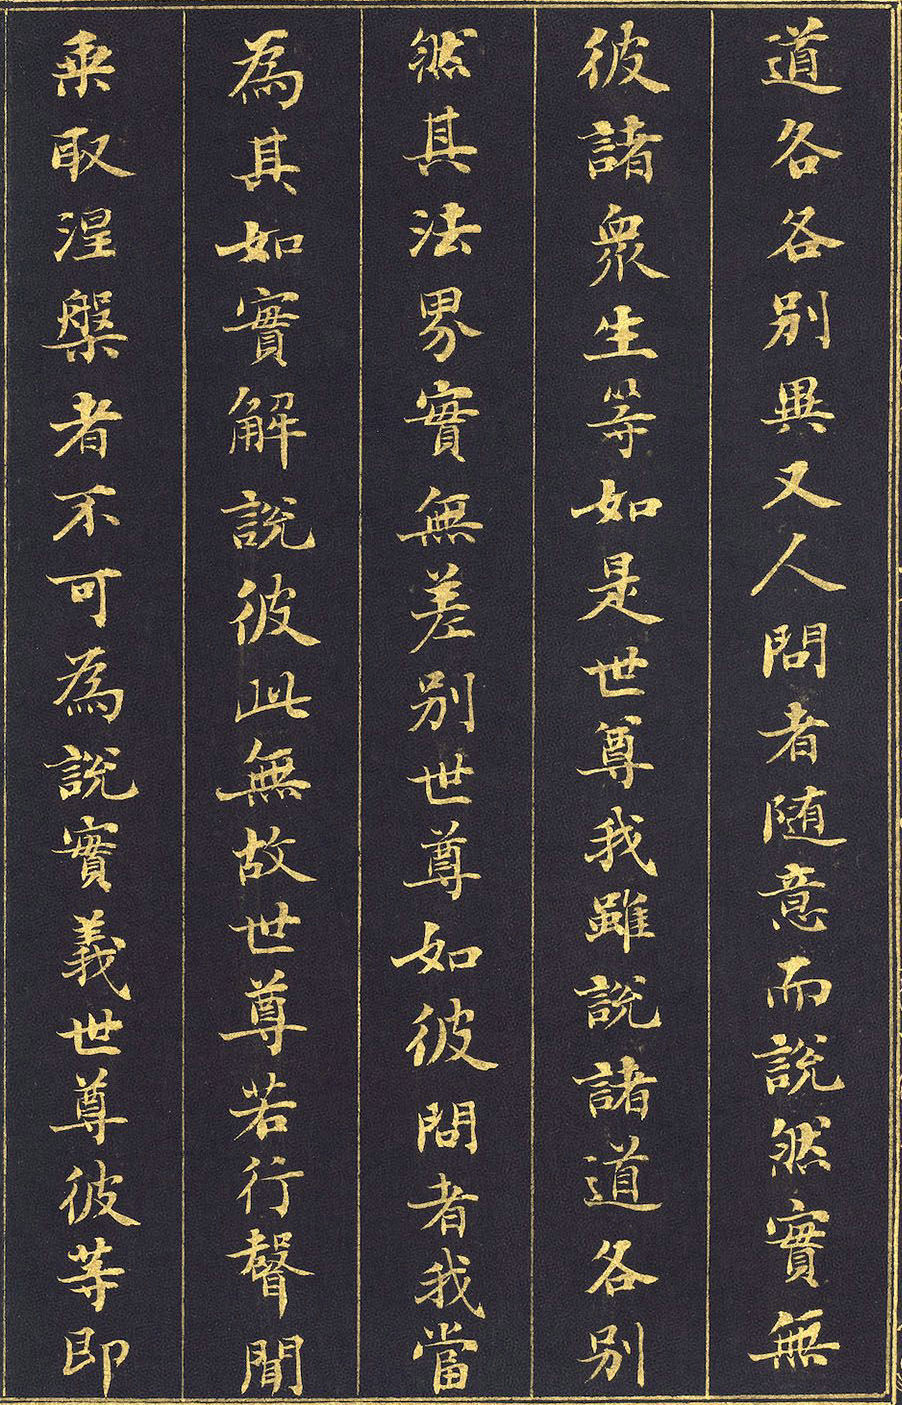 道各各別異又人問者随意而說然實無
彼諸衆生等如是世尊我雖說諸道各別
然其法界實無差別世尊如彼問者我當
為其如實解說彼此無故世尊若行聲聞
乘取涅槃者不可為說實義世尊彼等即